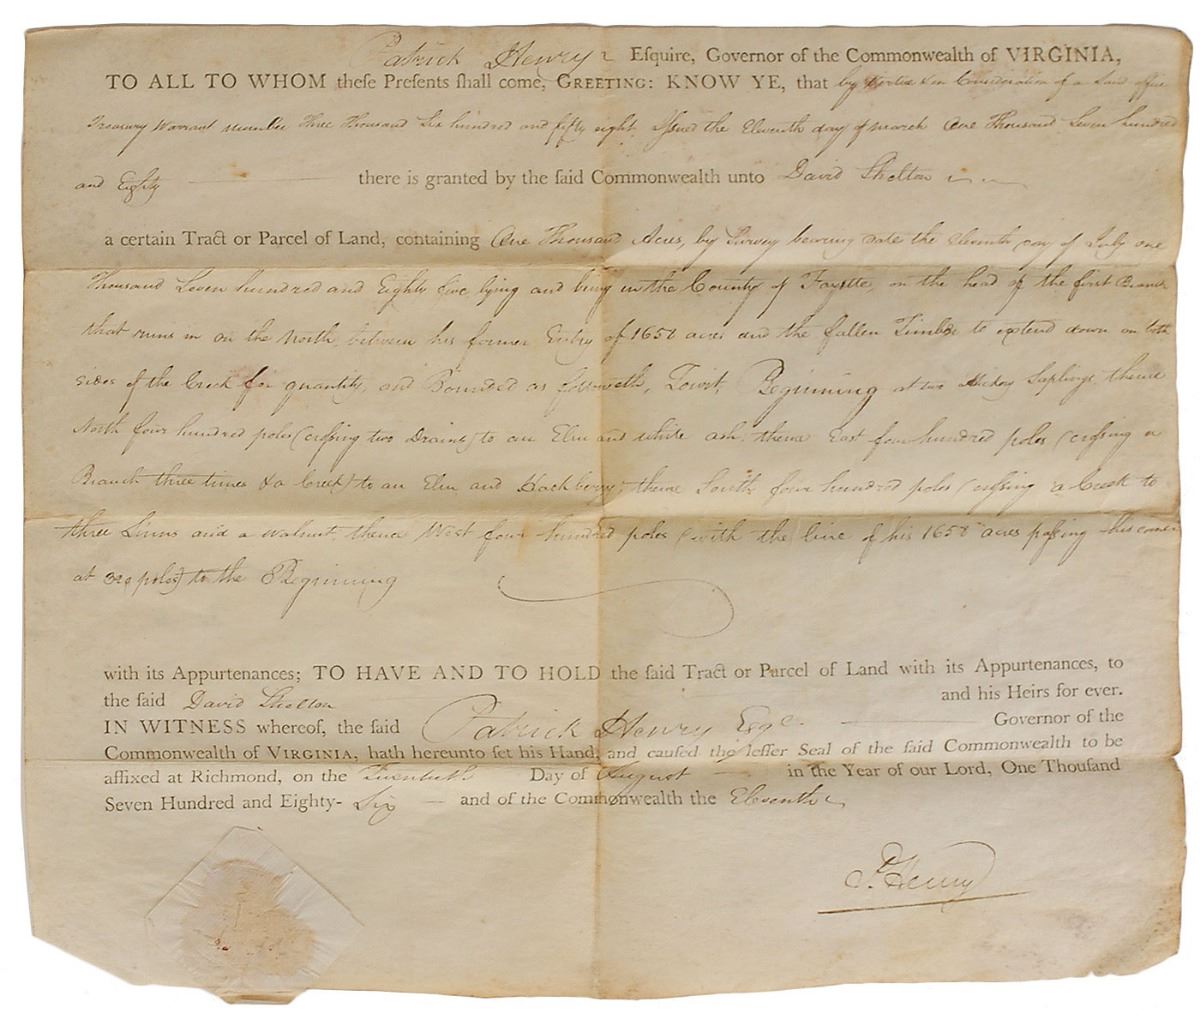 Patrick Henry Eſquire, Governor of the Commonwealth of VIRGINIA,
TO ALL TO WHOM theſe Preſents ſhall come, GREETING: KNOW YE, that by Virtue & in Consideration of a Land office
Treasury Warrant number Three Thousand Six hundred and fifty eight Iſsued the Eleventh day of march One Thousand Seven hundred
and Eighty there is granted by the ſaid Commonwealth unto David Shelton
a certain Tract or Parcel of Land, containing One Thousand Acres, by Survey bearing date the Eleventh day of July one
Thousand Seven hundred and Eighty five lying and being in the County of Fayette, on the head of the first Branch
that runs in on the North between his former Entry of 1650 acres and the fallen Timber to extend down on both
sides of the Creek for quantity, and Bounded as followeth, Towit, Beginning at two Hickory Saplings thence
North four hundred poles (croſsing two Drains) to an Elm and white ash thence East four hundred poles (croſsing a
Branch three times & a Creek) to an Elm and Hackberry, thence South four hundred poles (croſsing a Creek to
three Linns and a walnut, thence West four hundred poles (with the line of his 1650 acres paſsing his corner
at 320 poles) to the Beginning
with its Appurtenances; TO HAVE AND TO HOLD the ſaid Tract or Parcel of Land with its Appurtenances, to
the ſaid David Shelton and his Heirs for ever.
IN WITNESS whereof, the ſaid Patrick Henry Esqr. Governor of the
Commonwealth of VIRGINIA, hath hereunto ſet his Hand, and cauſed the leſſer Seal of the ſaid Commonwealth to be
affixed at Richmond, on the Twentieth Day of August in the Year of our Lord, One Thouſand
Seven Hundred and Eighty- Six and of the Commonwealth the Eleventh
P. Henry